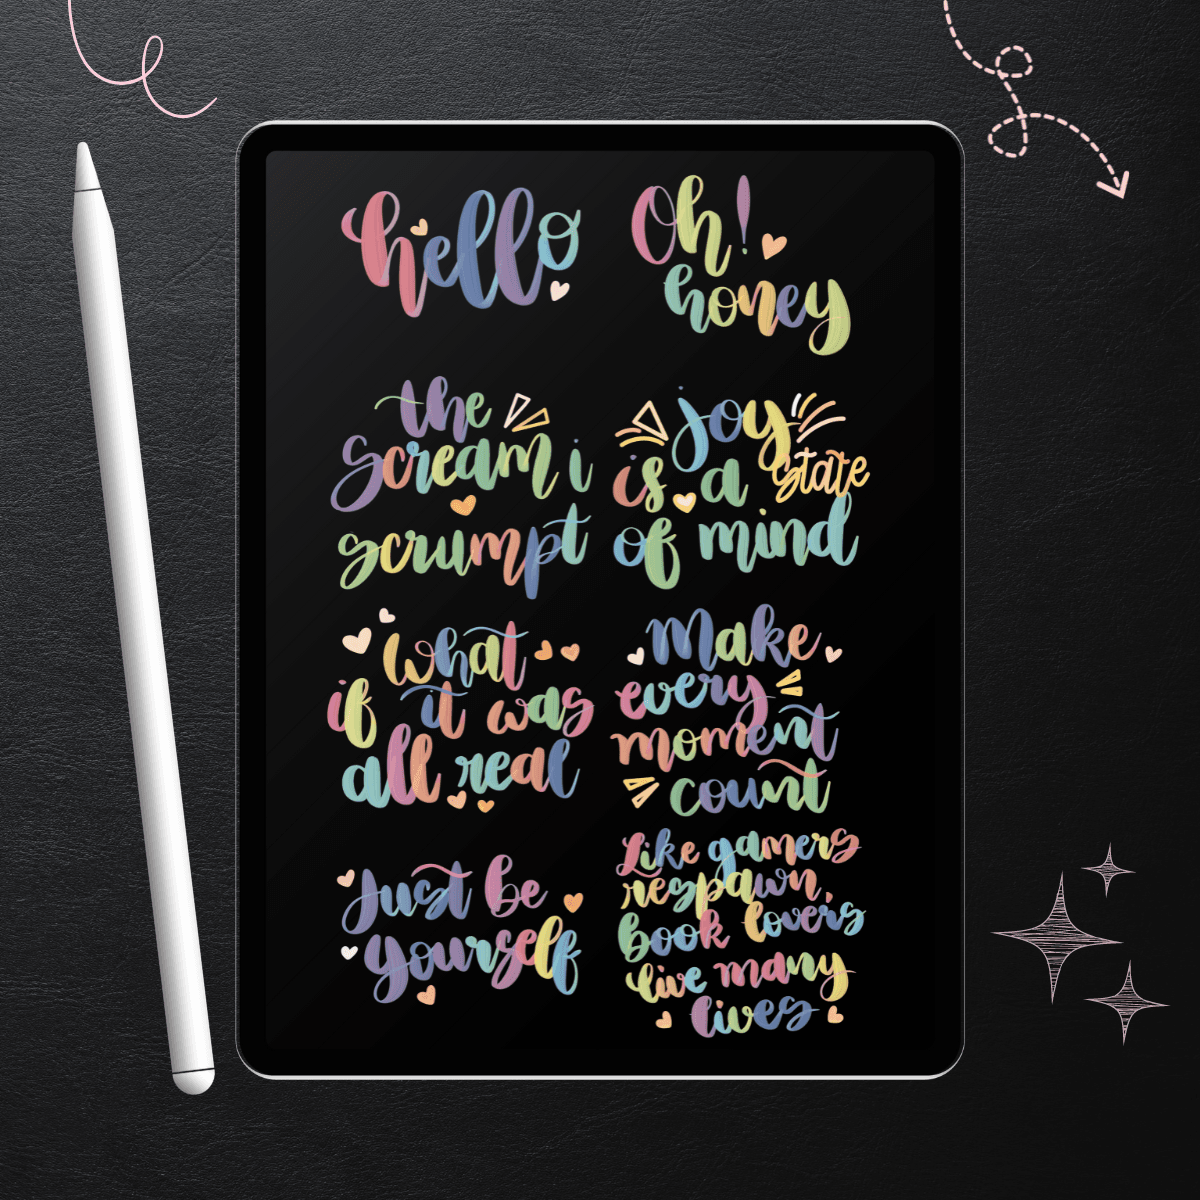 hello
Oh!
honey
the
scream i
scrumpt
joy
is a state
of mind
what
if it was
all real
Make
every
moment
count
just be
yourself
Like gamers
respawn,
book lovers
live many
lives